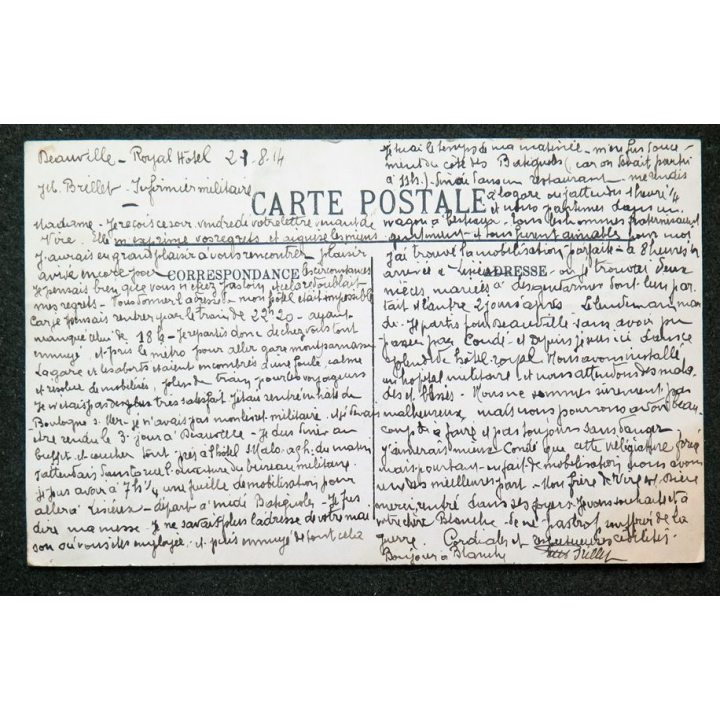 Deauville - Royal Hôtel 21-8-14
Brillet - Infirmier militaire
CARTE POSTALE
CORRESPONDANCE
ADRESSE
Madame - Je reçois ce soir vendredi votre lettre venant de
Vire. Elle m'exprime vos regrets et aiguise les miens
J'aurais eu grand plaisir à vous rencontrer - plaisir
avivé encore par les circonstances
Je pensais bien que vous n chez et cela redoublait
mes regrets - Vous donner l'adresse mon hôtel était impossible
car je pensais rentrer par le train de 22h20 - ayant
manqué celui de 18h - Je repartis donc de chez vous tout
ennuyé - et pris le métro pour aller gare montparnasse
La gare et les aborts étaient encombrés d'une foule, calme
et résolue de mobilisés, plus de train pour les voyageurs
Je n'étais pas très satisfait J'étais rentré en hâte de
Boulogne s. Mer - je n'avais pas mon livret militaire - et je devais
être rendu le 3e jour à Deauville - Je dus dîner au
buffet et coucher tout près à l'hôtel St Malo - 9h. du matin
J'attendais l'ouverture du bureau militaire
je pus avoir à 7h¼ une feuille de mobilisation pour
aller à Lisieux - départ à midi Batignolles - Je pus
dire ma messe - Je ne savais plus l'adresse de votre mai
son où vous êtes employée - et puis ennuyé de tout cela
je tuai le temps de ma matinée - m'en fus douce
ment du côté des Batignolles (car on devait partir
à 11h.) - dînai dans un restaurant - me rendis
à la gare où j'attendis 1 heure ¼
et nous partîmes dans un
wagon à bestiaux - tous les hommes fraternisaient
gentiment - et tous furent aimables pour moi
J'ai trouvé la mobilisation parfaite - à 8 heures ½
arrivée à Lisieux - où je trouvai deux
nièces mariées à des gendarmes dont l'un par
tait et l'autre 2 jours après Le lendemain mar
di - Je partis pour Deauville - sans avoir pu
passer par Condé - et depuis je suis ici dans ce
splendide hôtel-royal Nous avons installé
un hôpital militaire et nous attendons des mala
des et blessés - Nous ne sommes sûrement pas
malheureux, mais nous pourrons avoir beau
coup à faire et pas toujours sans danger
J'aimerais mieux Condé que cette villégiature forcée
mais pourtant en fait de mobilisation, nous avons
une des meilleures part - Mon frère de Vire est Dieu
merci, rentré dans ses foyers. Je vous souhaite et à
votre chère Blanche de ne pas trop souffrir de la
guerre. Cordiales et civilités.
Bonjour à Blanche Brillet